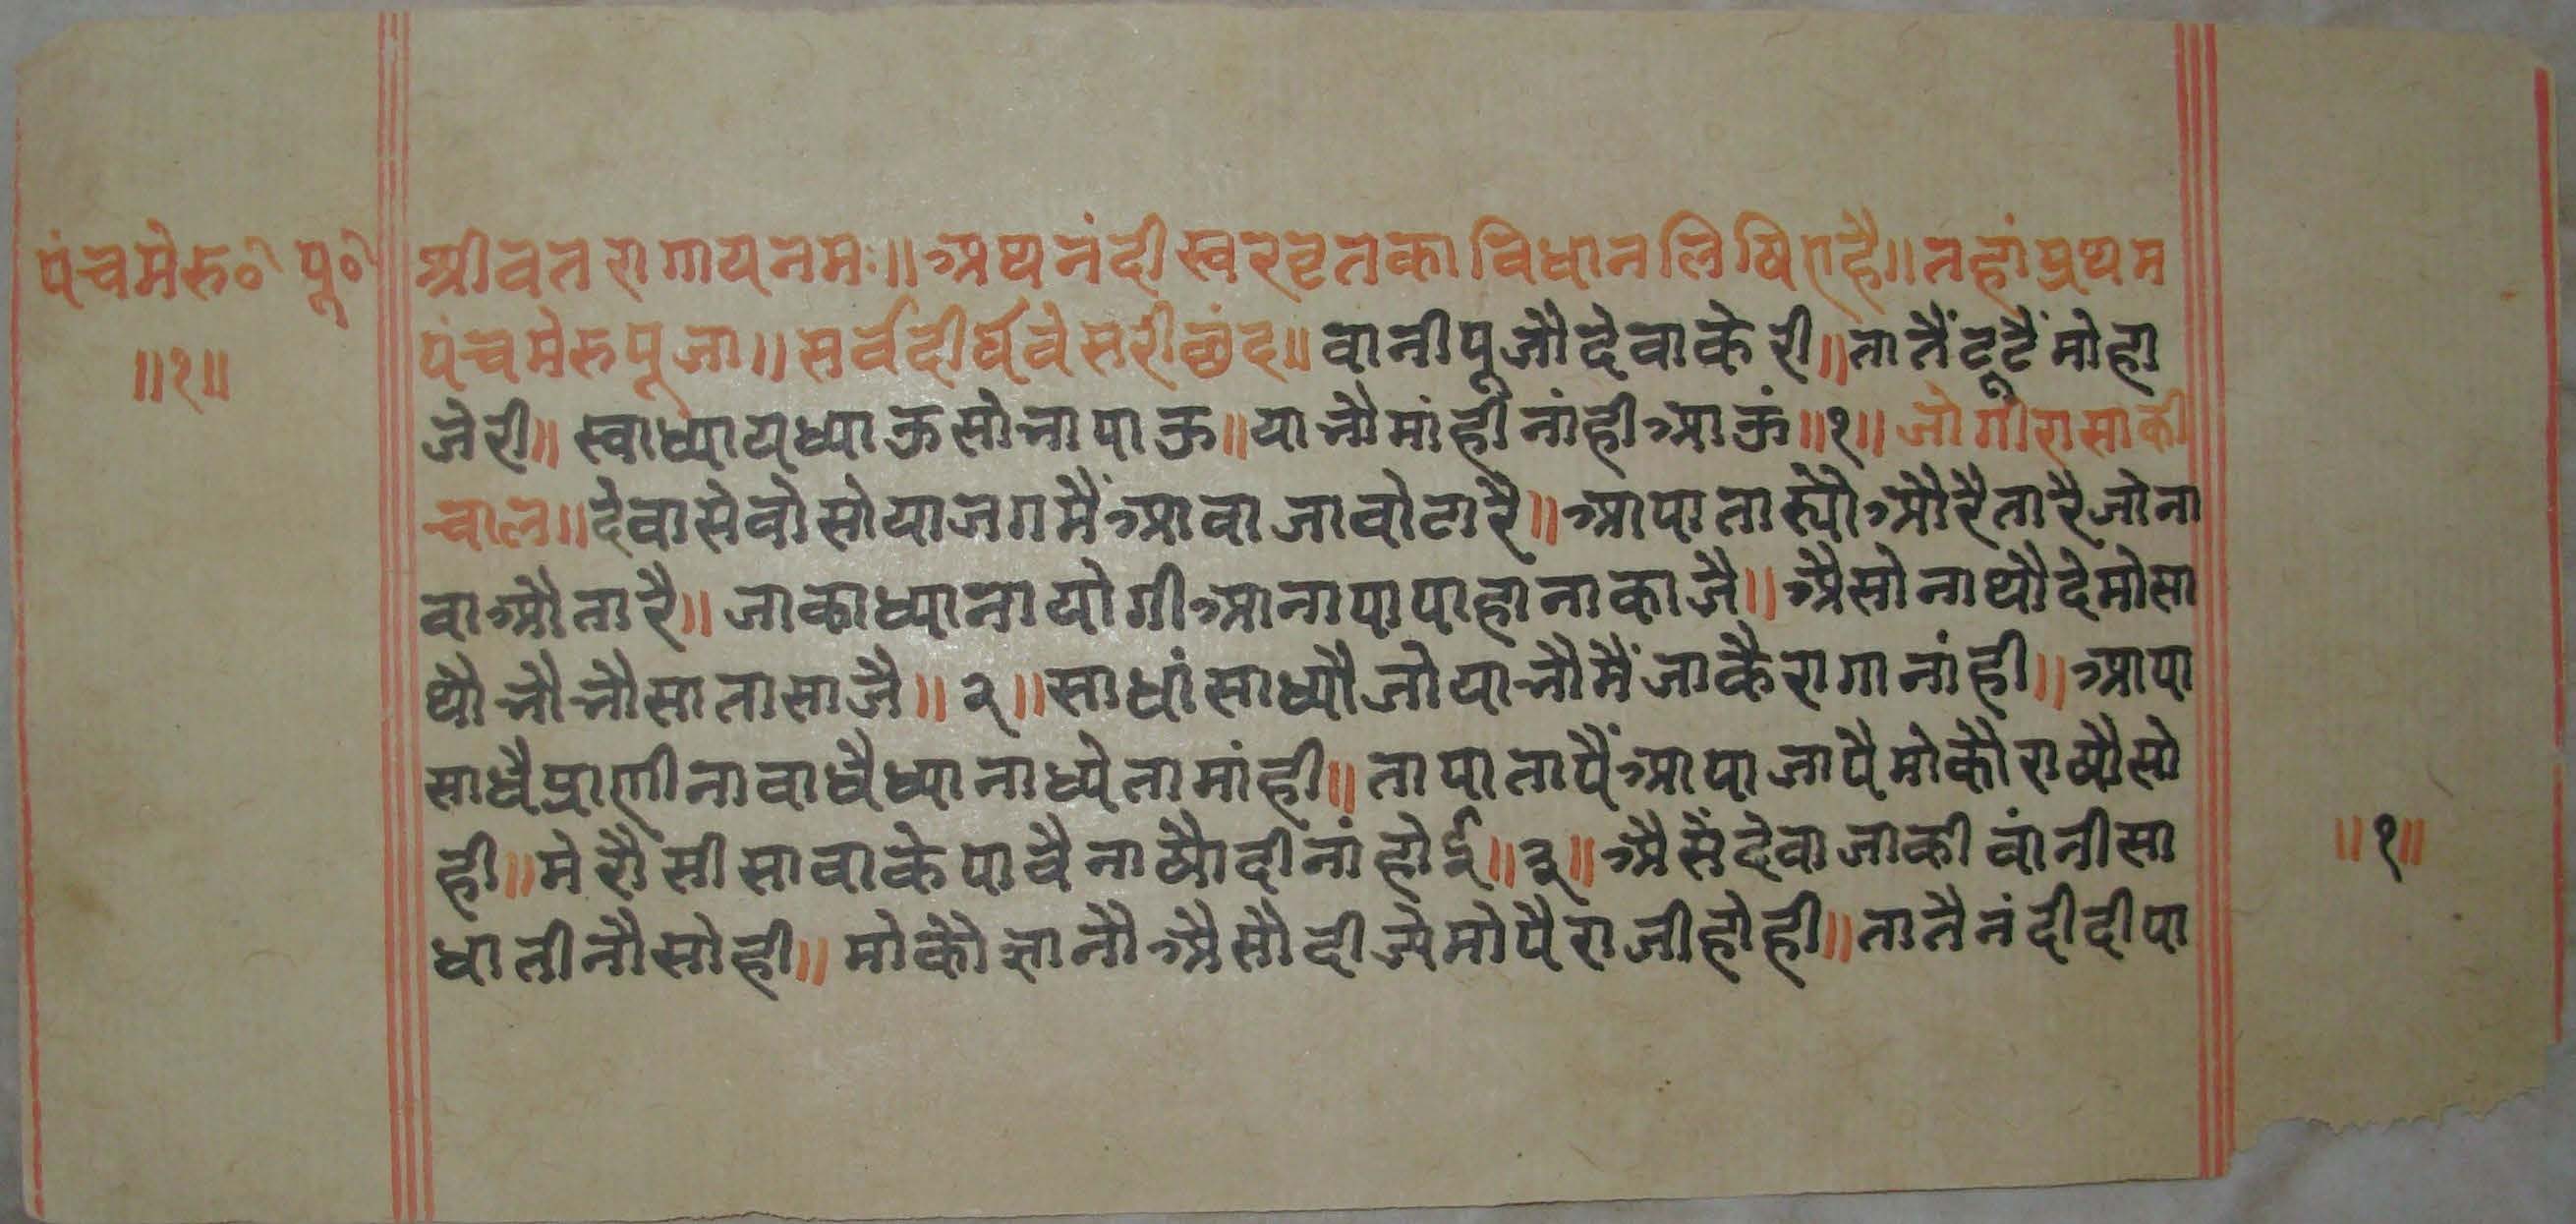 पंचमेरु० पू०
॥१॥
श्रीवतरागायनमः॥अथनंदीस्वरवृतकाविधानलिषिएहै॥तहांप्रथम
पंचमेरुपूजा॥सर्वदीर्घवेसरीछंद॥वानीपूजौदेवाकेरी॥तातैंटूटैंमोहा
जेरी॥स्वाध्यायध्याऊसोनापाऊ॥यानौमांहीनांहीआऊं॥१॥जोगीरासाकी
चाल॥देवासेवोसोयाजगमैंआवाजावोटारै॥आपातास्यौऔरैतारैजोना
वाऔतारै॥जाकाध्यानायोगीआनापापाहानाकाजै॥औसोनाथौदेमोसा
थौनौनौसातासाजै॥२॥साधांसाध्यौजोयानौमैंजाकैरागानांही॥आपा
साधैप्राणीनावाधैध्यानाध्येतामांही॥तापातापैंआपाजापैमोकौराष्यौसो
ही॥मेरौसीसावाकेपावैनाष्यौदीनांहोई॥३॥औसैंदेवाजाकीवांनीसा
धातीनौसोही॥मोकौज्ञानौऔसौदीज्येमोपैराजीहोही॥तातैनंदीदीपा
॥१॥